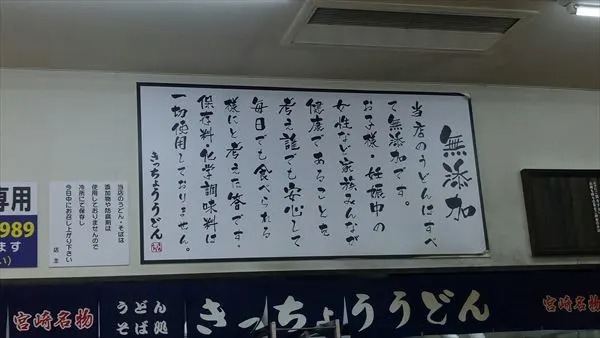 無添加
当店のうどんはすべ
て無添加です。
お子様・妊娠中の
女性など家族みんなが
健康であることを
考え誰でも安心して
毎日でも食べられる
様にと考えた答です。
保存料・化学調味料は
一切使用しておりません。
きっちょううどん
専用
989
ます
い)
当店のうどん・そばは
添加物や防腐剤は
使用しておりませんので
冷所にて保存し
今日中にお召し上がり下さい
店主
宮崎名物
うどん
そば処
きっちょううどん
宮崎名物